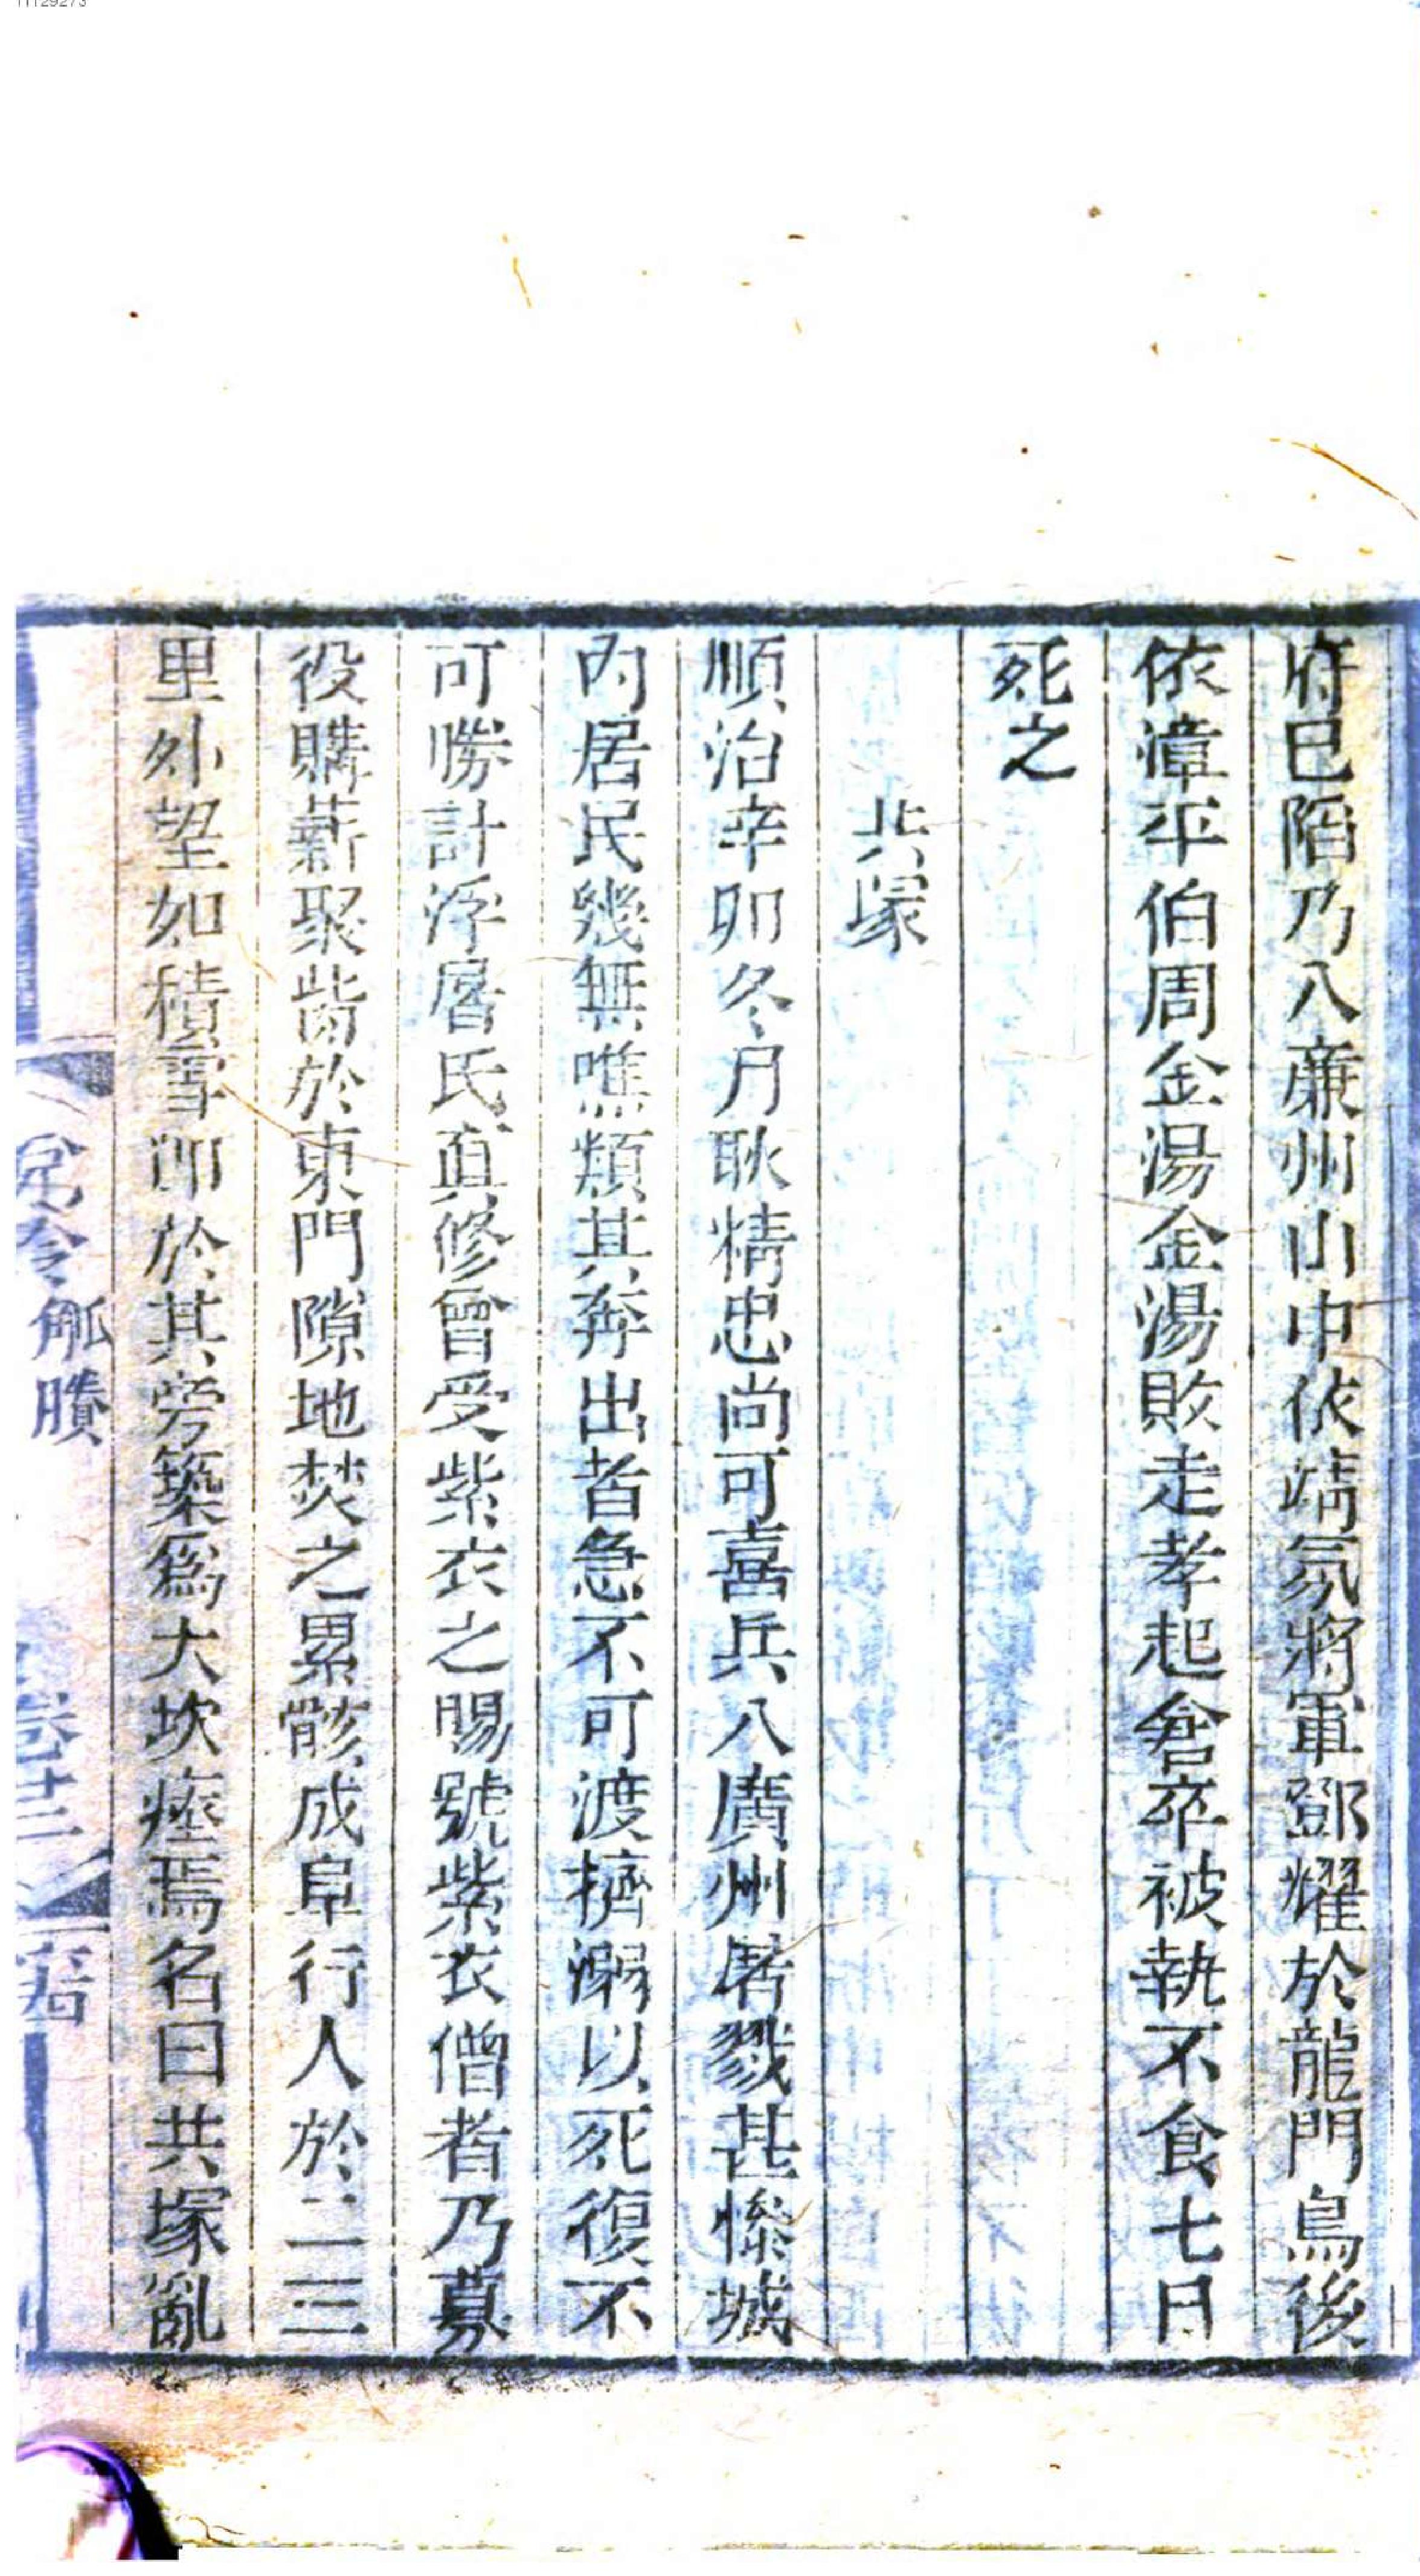 府已陷乃入廉州山中依靖氛將軍鄧耀於龍門島後
依漳平伯周金湯金湯敗走孝起倉卒被執不食七日
死之
共塚
順治辛卯冬月耿精忠尚可喜兵入廣州屠戮甚慘城
內居民幾無噍類其奔出者急不可渡擠溺以死復不
可勝計浮屠氏真修曾受紫衣之賜號紫衣僧者乃募
役購薪聚胔於東門隙地焚之累骸成阜行人於二三
里外望如積雪即於其旁築爲大坎瘞焉名曰共塚亂
觚賸
卷
11129273